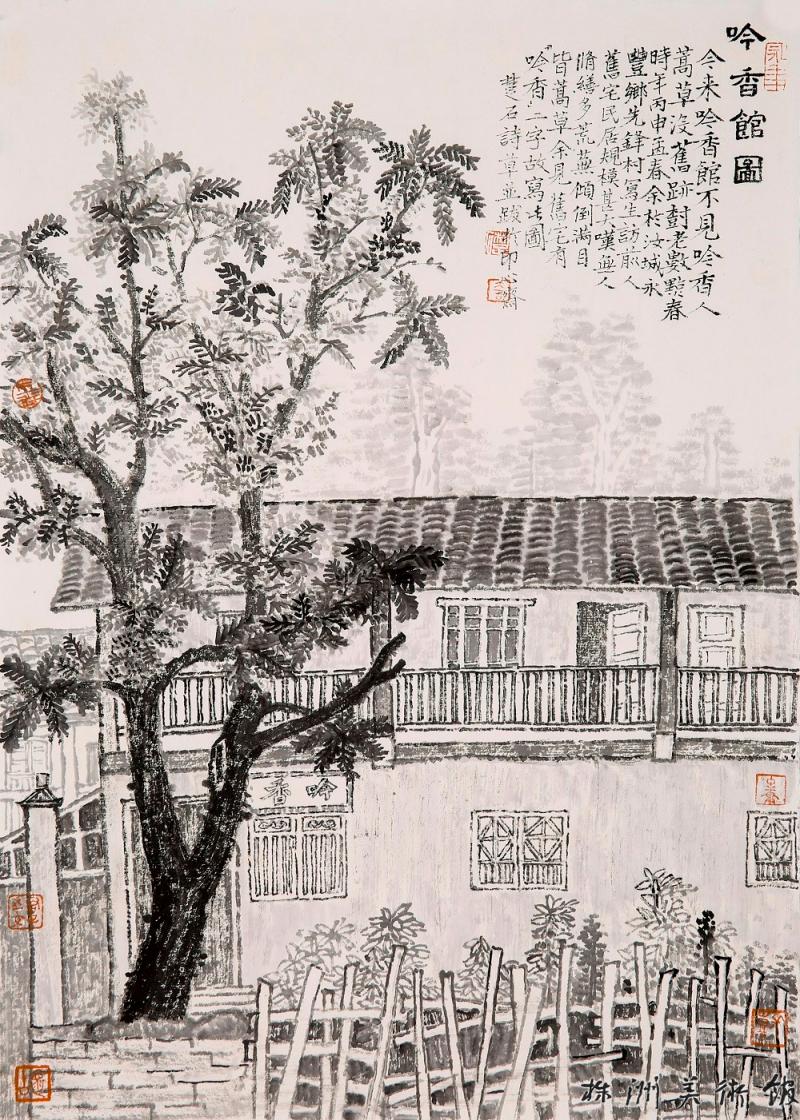 吟香館圖
今来吟香館不見吟香人
蒿草没舊跡對老數點春
時年丙申孟春余於汝城永
豐鄉先鋒村寫生訪前人
舊宅民居規模甚大嘆無人
脩繕多荒蕪傾倒满目
皆蒿草余見舊宅有
"吟香"二字故寫此圖
楚石詩草並跋於印心齋
吟香
株洲美術館